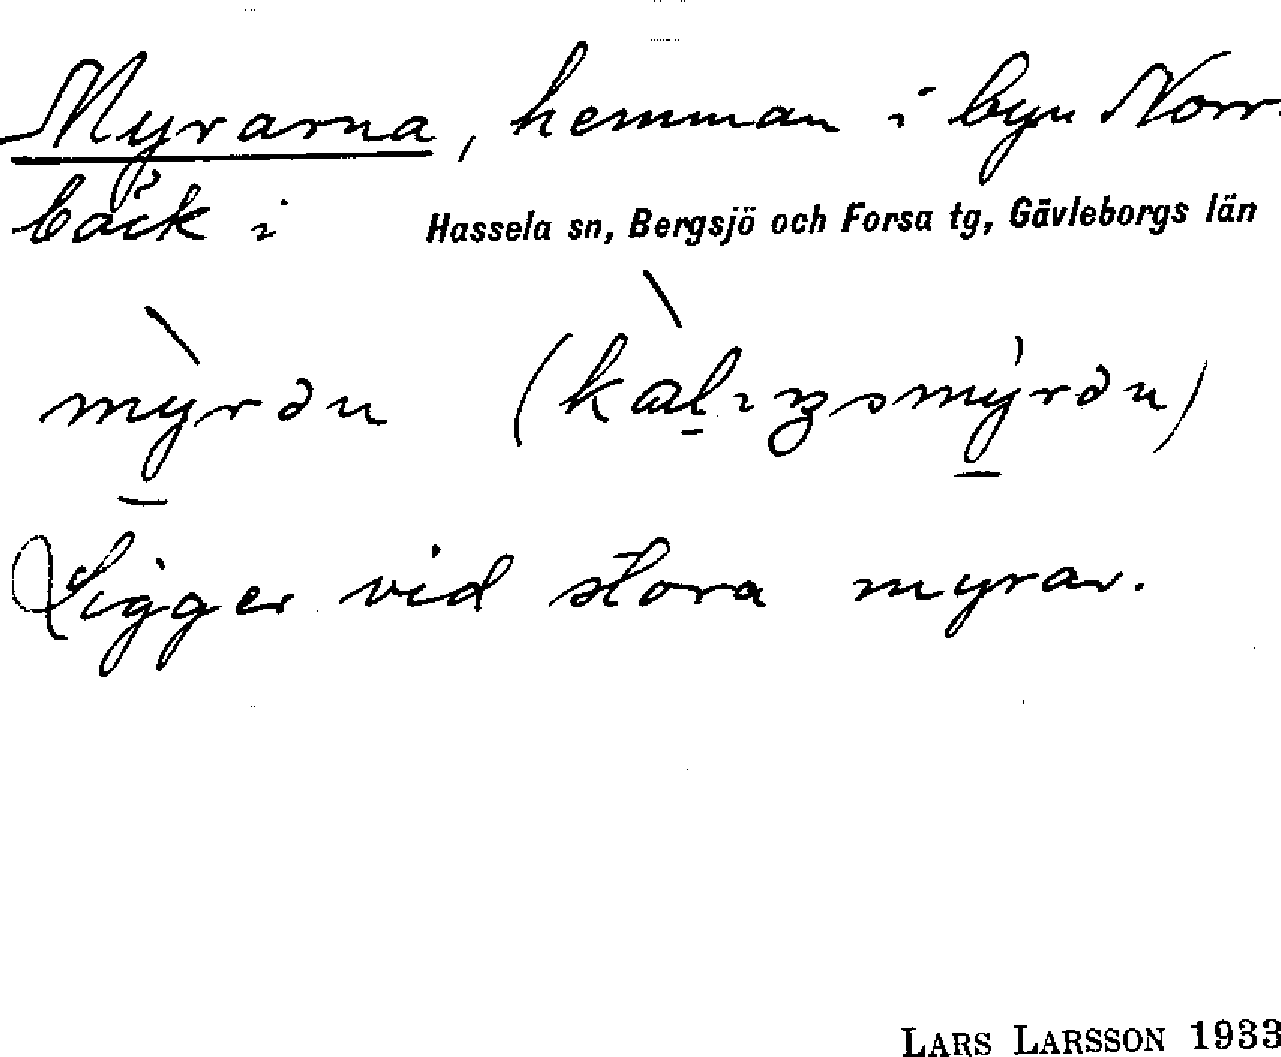 Myrarna, hemman i byn Norr-
bäck i Hassela sn, Bergsjö och Forsa tg, Gävleborgs län
myrən
Ligger vid stora myrar.
LARS LARSSON 1933